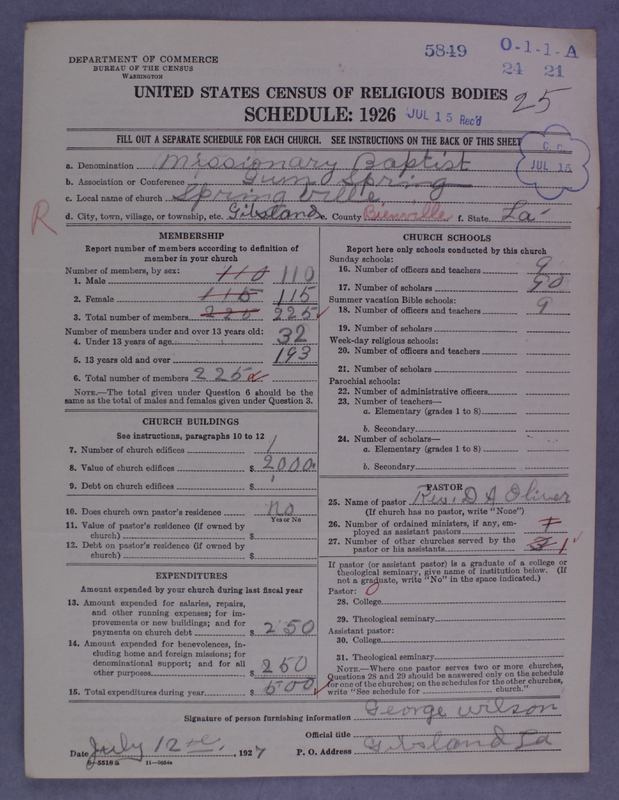 DEPARTMENT OF COMMERCE
BUREAU OF THE CENSUS
WASHINGTON
5849
O-1-1-A
24 21
UNITED STATES CENSUS OF RELIGIOUS BODIES
25
SCHEDULE: 1926
JUL 15 Rec'd
FILL OUT A SEPARATE SCHEDULE FOR EACH CHURCH. SEE INSTRUCTIONS ON THE BACK OF THIS SHEET
JUL 15
a. Denomination Missionary Baptist
b. Association or Conference Gum Spring
c. Local name of church Spring ville
d. City, town, village, or township, etc. Gibsland e. County Bienville f. State La-
R
MEMBERSHIP
Report number of members according to definition of
member in your church
Number of members, by sex:
1. Male 110 110
2. Female 115 115
3. Total number of members 225 225
Number of members under and over 13 years old:
4. Under 13 years of age 32
5. 13 years old and over 193
6. Total number of members 225
NOTE.—The total given under Question 6 should be
same as the total of males and females given under Question 3.
CHURCH BUILDINGS
See instructions, paragraphs 10 to 12
7. Number of church edifices 1
8. Value of church edifices $ 2000
9. Debt on church edifices $
10. Does church own pastor's residence No
Yes or No
11. Value of pastor's residence (if owned by
church) $
12. Debt on pastor's residence (if owned by
church) $
EXPENDITURES
Amount expended by your church during last fiscal year
13. Amount expended for salaries, repairs,
and other running expenses; for im-
provements or new buildings; and for
payments on church debt $ 250
14. Amount expended for benevolences, in-
cluding home and foreign missions; for
denominational support; and for all
other purposes $ 250
15. Total expenditures during year $ 500
CHURCH SCHOOLS
Report here only schools conducted by this church
Sunday schools:
16. Number of officers and teachers 9
17. Number of scholars 90
Summer vacation Bible schools:
18. Number of officers and teachers 9
19. Number of scholars
Week-day religious schools:
20. Number of officers and teachers
21. Number of scholars
Parochial schools:
22. Number of administrative officers
23. Number of teachers—
a. Elementary (grades 1 to 8)
b. Secondary
24. Number of scholars—
a. Elementary (grades 1 to 8)
b. Secondary
PASTOR
25. Name of pastor Rev. D A Oliver
(If church has no pastor, write "None")
26. Number of ordained ministers, if any, em-
ployed as assistant pastors
27. Number of other churches served by the
pastor or his assistants 1
If pastor (or assistant pastor) is a graduate of a college or
theological seminary, give name of institution below. (If
not a graduate, write "No" in the space indicated.)
Pastor: 0
28. College
29. Theological seminary
Assistant pastor:
30. College
31. Theological seminary
NOTE.—Where one pastor serves two or more churches,
Questions 28 and 29 should be answered only on the schedule
for one of the churches; on the schedules for the other churches,
write "See schedule for church."
Signature of person furnishing information George Wilson
Official title
Date July 12 , 1927 P. O. Address Gibsland La